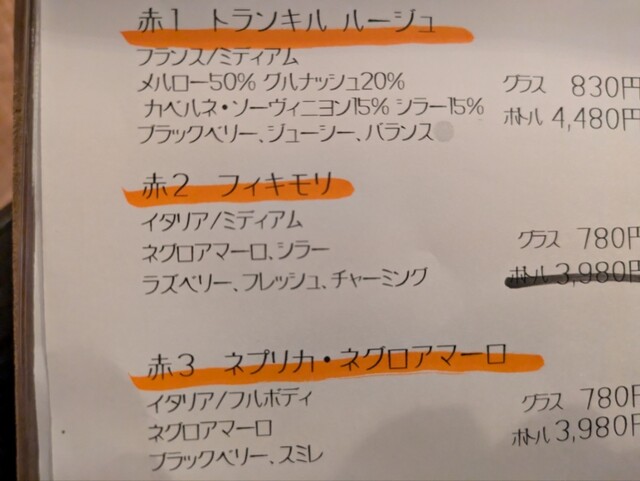 赤1 トランキル ルージュ
フランス/ミディアム
メルロー50% グルナッシュ20%
カベルネ・ソーヴィニヨン15% シラー15%
ブラックベリー、ジューシー、バランス
グラス 830円
ボトル 4,480円
赤2 フィキモリ
イタリア/ミディアム
ネグロアマーロ、シラー
ラズベリー、フレッシュ、チャーミング
グラス 780円
ボトル 3,980円
赤3 ネプリカ・ネグロアマーロ
イタリア/フルボディ
ネグロアマーロ
ブラックベリー、スミレ
グラス 780円
ボトル 3,980円